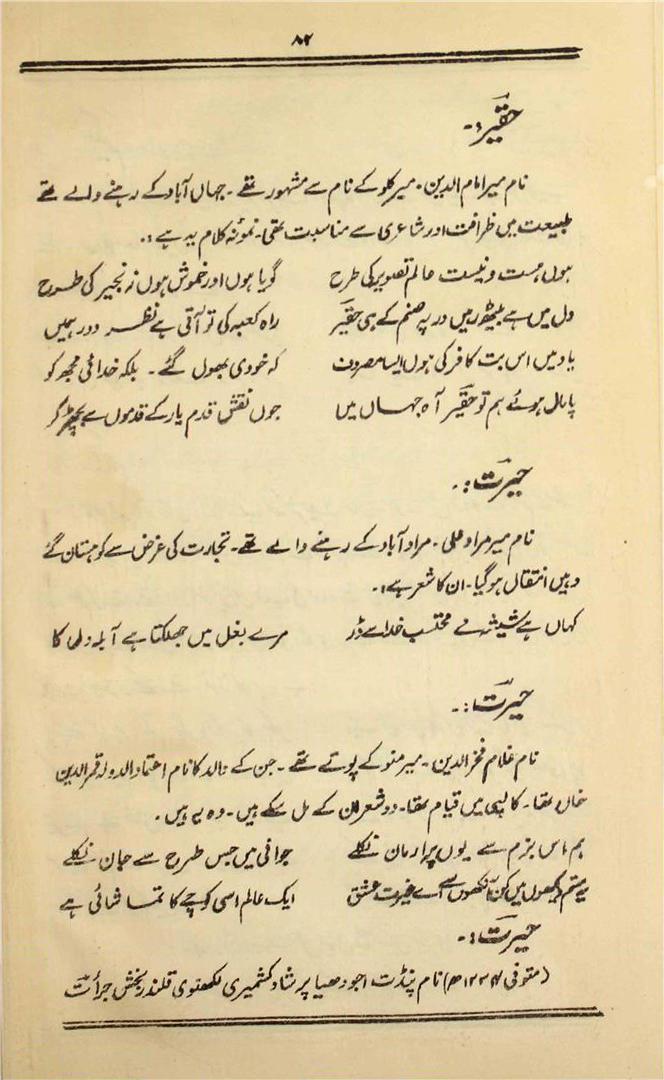 ۸۲
حقیر:-
نام میر امام الدین۔ میر کلو کے نام سے مشہور تھے۔ جہاں آباد کے رہنے والے تھے
طبیعت میں ظرافت اور شاعری سے مناسبت تھی۔ نمونہ کلام یہ ہے:۔
ہوں ہست و نیست عالم تصویر کی طرح گویا ہوں اور خموش ہوں زنجیر کی طرح
دل میں ہے بیٹھ رہیں در پہ صنم کے ہی حقیر راہ کعبہ کی تو آتی ہے نظر دور ہمیں
یاد میں اس بت کافر کی ہوں ایسا مصروف کہ خودی بھول گئے۔ بلکہ خدائی مجھ کو
پامال ہوئے ہم تو حقیر آہ جہاں میں جوں نقش قدم یار کے قدموں سے بچھڑ کر
حیرت:۔
نام میر مراد علی۔ مراد آباد کے رہنے والے تھے۔ تجارت کی غرض سے کوہستان گئے
وہیں انتقال ہوگیا۔ ان کا شعر ہے:۔
کہاں ہے شیشہ مے محتسب خدا سے ڈر مرے بغل میں جھلکتا ہے آبلہ دل کا
حیرت:۔
نام غلام فخرالدین۔ میر منو کے پوتے تھے۔ جن کے والد کا نام اعتماد الدولہ قمرالدین
خاں تھا۔ کالپی میں قیام تھا۔ دو شعر ان کے مل سکے ہیں۔ وہ یہ ہیں۔
ہم اس بزم سے یوں پر ارمان نکلے جوانی میں جس طرح سے جان نکلے
یہ ستم دیکھوں میں کن آنکھوں سے اے غیرت عشق ایک عالم اسی کوچے کا تماشائی ہے
حیرت:۔
(متوفی ۱۲۳۴ھ) نام پنڈت اجودھیا پرشاد کشمیری لکھنوی قلندر بخش جرأت